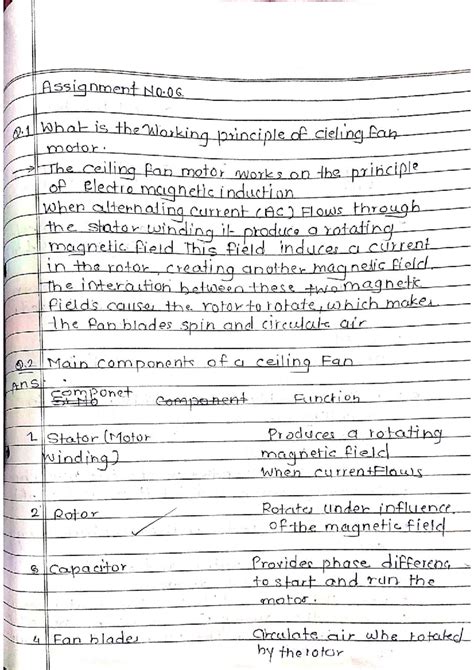 Assignment No.06
Q.1 What is the Working principle of cieling fan
motor.
→ The ceiling fan motor works on the principle
of Electro magnetic induction
When alternaling current (AC) Flows through
the stator winding it produce a rotating
magnetic field This field induces a current
in the rotor, creating another magnetic field.
the interaction between these two magnetic
fields causes the rotor to rotate, which makes
the fan blades spin and circulate air
Q.2 Main components of a ceiling Fan
Ans.
componet Function
Sr.No Component
1 Stator (Motor Produces a rotating
Winding) magnetic field
when current Flows
2 Rotor Rotates under influence
of the magnetic field
3 Capacitor Provides phase differenc
to start and run the
motor.
4 Fan blades Circulate air whe rotated
by the rotor